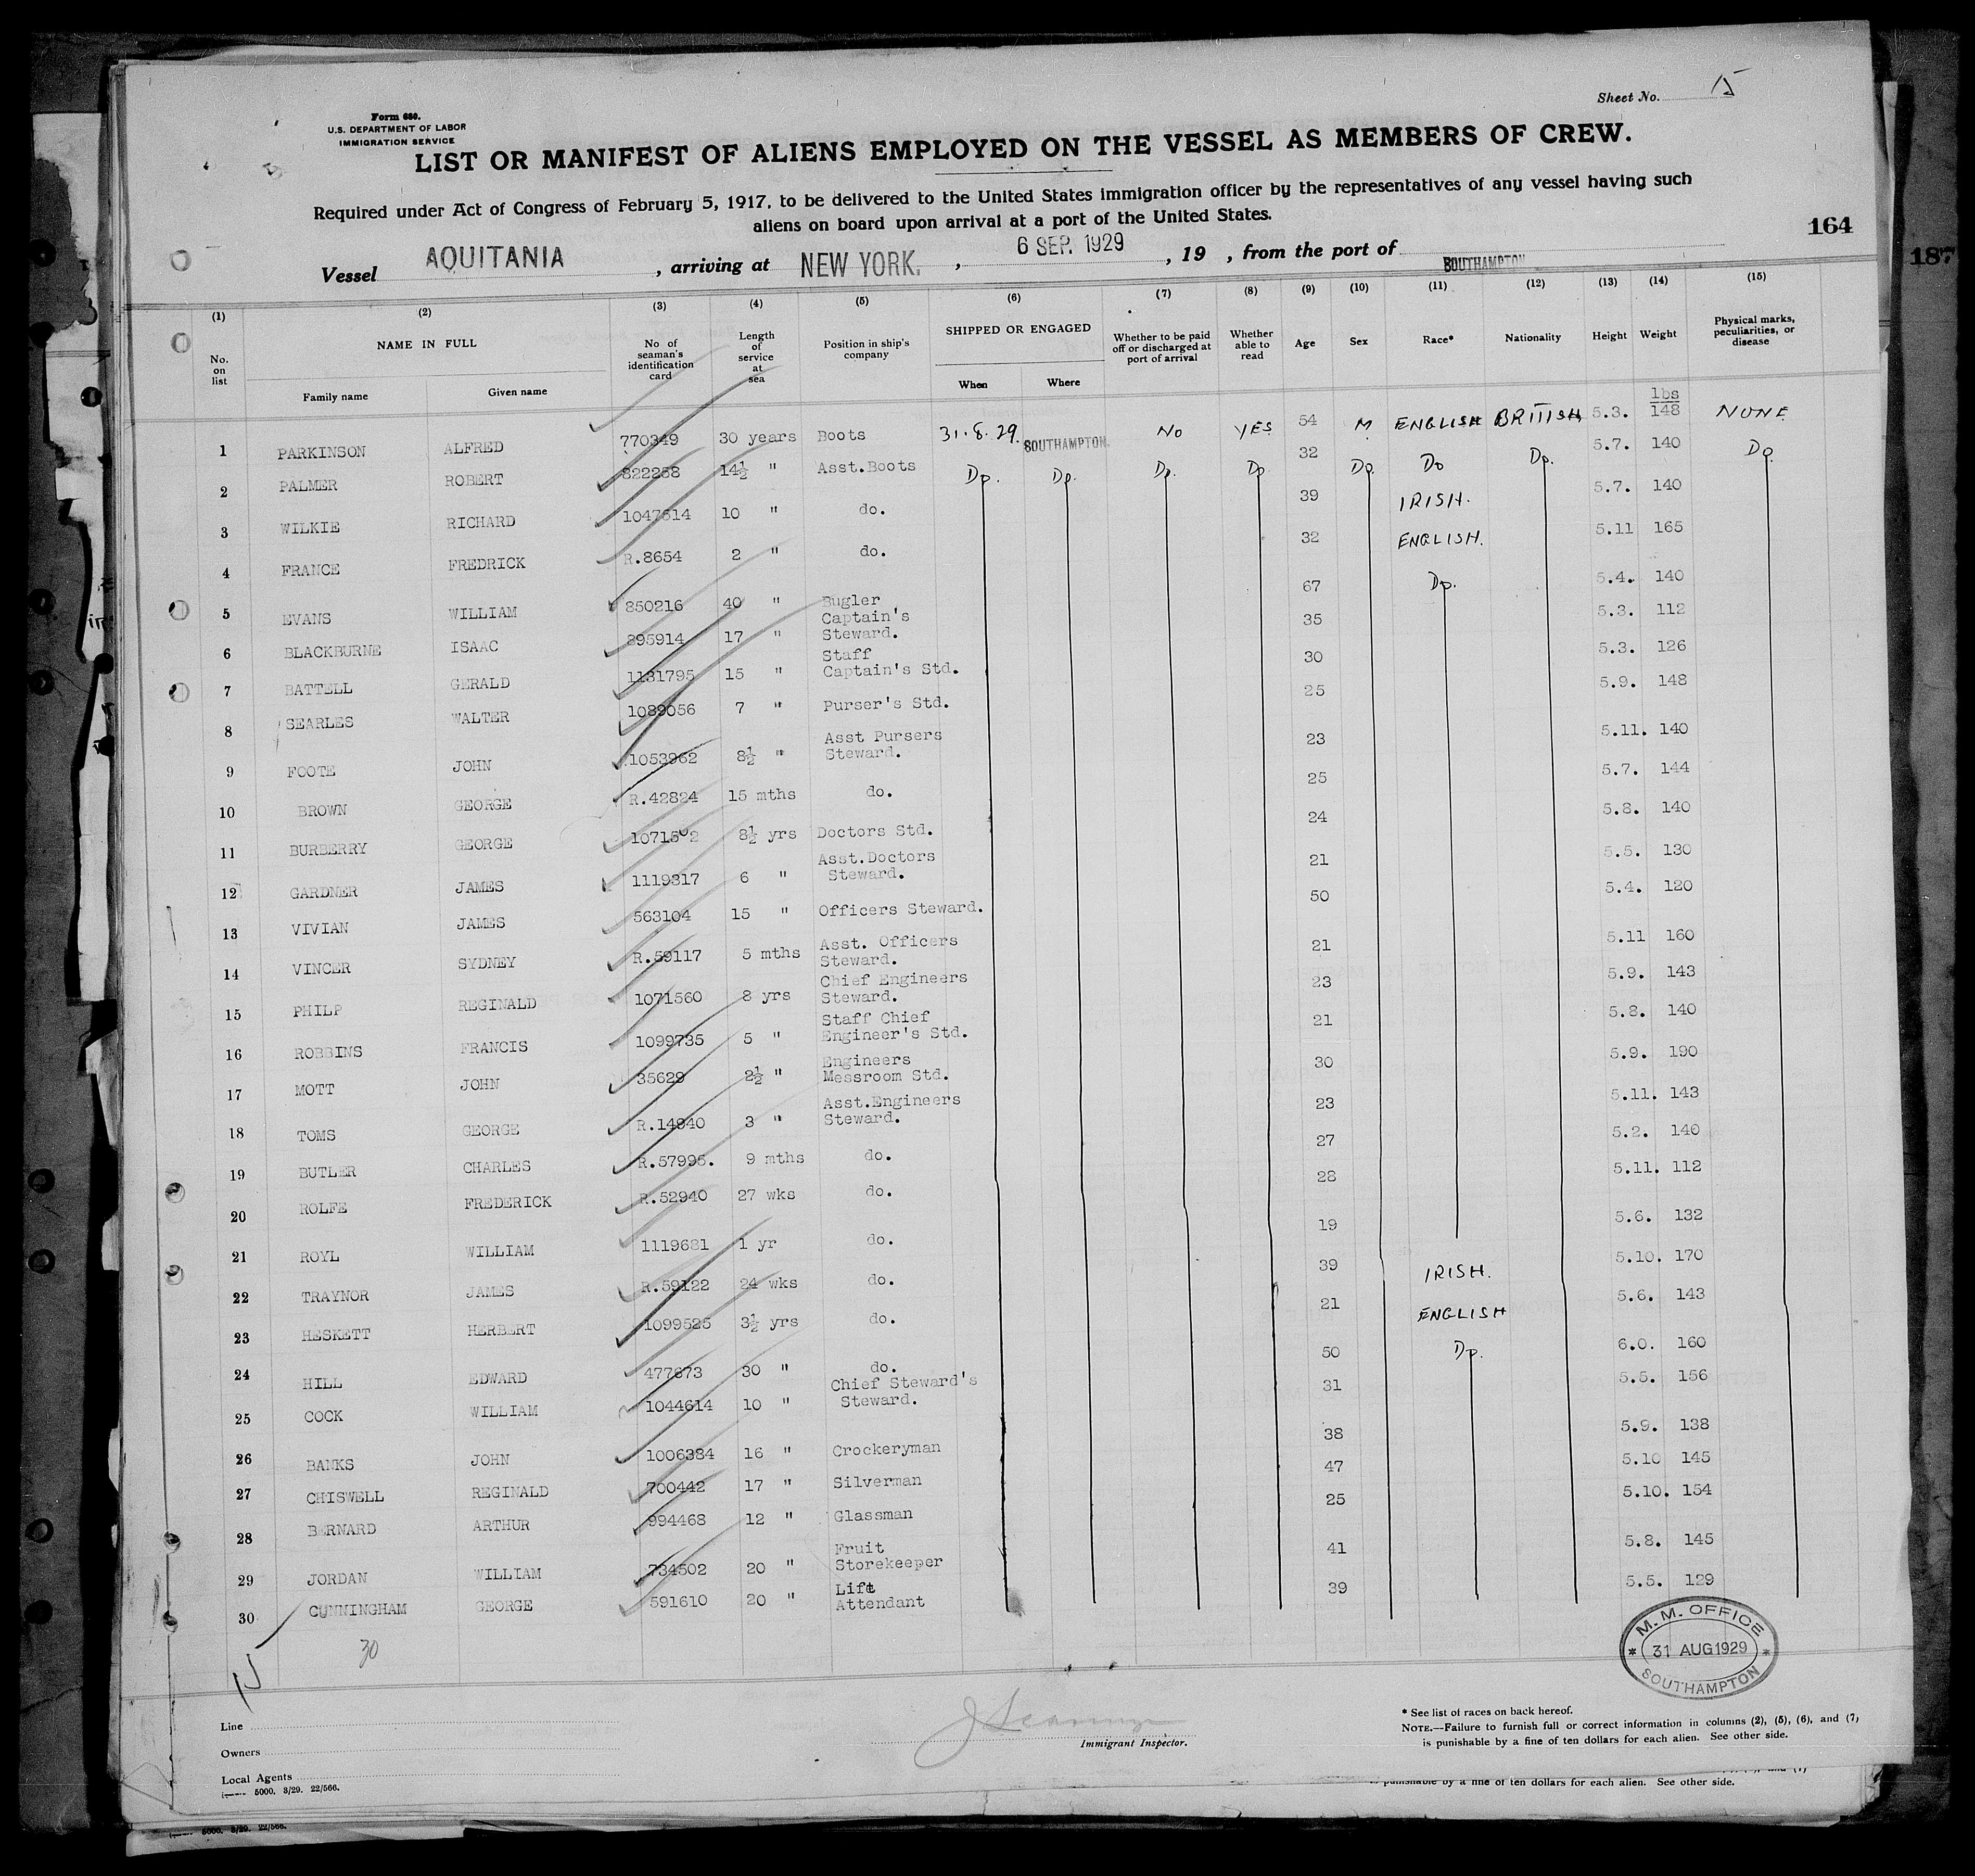 Sheet No. 15
Form 680.
U.S. DEPARTMENT OF LABOR
IMMIGRATION SERVICE
LIST OR MANIFEST OF ALIENS EMPLOYED ON THE VESSEL AS MEMBERS OF CREW.
Required under Act of Congress of February 5, 1917, to be delivered to the United States immigration officer by the representatives of any vessel having such
aliens on board upon arrival at a port of the United States.
164
187
Vessel AQUITANIA, arriving at NEW YORK., 6 SEP. 1929, 19 , from the port of SOUTHAMPTON
(1) (2) (3) (4) (5) (6) (7) (8) (9) (10) (11) (12) (13) (14) (15)
No. on list NAME IN FULL No. of seaman's identification card Length of service at sea Position in ship's company SHIPPED OR ENGAGED Whether to be paid off or discharged at port of arrival Whether able to read Age Sex Race* Nationality Height Weight Physical marks, peculiarities, or disease
Family name Given name When Where
lbs
1 PARKINSON ALFRED 770349 30 years Boots 31.8.29. SOUTHAMPTON. NO YES 54 M ENGLISH BRITISH 5.3. 148 NONE
2 PALMER ROBERT 822258 14½ " Asst.Boots Do. Do. Do. Do 32 Do. Do Do. 5.7. 140 Do.
3 WILKIE RICHARD 1047614 10 " do. 39 IRISH. 5.7. 140
4 FRANCE FREDRICK R.8654 2 " do. 32 ENGLISH. 5.11 165
5 EVANS WILLIAM 850216 40 " Bugler 67 Do. 5.4. 140
6 BLACKBURNE ISAAC 895914 17 " Captain's Steward. 35 5.3. 112
7 BATTELL GERALD 1131795 15 " Staff Captain's Std. 30 5.3. 126
8 SEARLES WALTER 1089056 7 " Purser's Std. 25 5.9. 148
9 FOOTE JOHN 1053962 8½ " Asst Pursers Steward. 23 5.11. 140
10 BROWN GEORGE R.42824 15 mths do. 25 5.7. 144
11 BURBERRY GEORGE 8½ yrs Doctors Std. 24 5.8. 140
12 GARDNER JAMES 1119317 6 " Asst.Doctors Steward. 21 5.5. 130
13 VIVIAN JAMES 563104 15 " Officers Steward. 50 5.4. 120
14 VINCER SYDNEY R.59117 5 mths Asst. Officers Steward. 21 5.11 160
15 PHILP REGINALD 1071560 8 yrs Chief Engineers Steward. 23 5.9. 143
16 ROBBINS FRANCIS 1099735 5 " Staff Chief Engineer's Std. 21 5.8. 140
17 MOTT JOHN 35629 2½ " Engineers Messroom Std. 30 5.9. 190
18 TOMS GEORGE R.14940 3 " Asst.Engineers Steward. 23 5.11. 143
19 BUTLER CHARLES R.57995. 9 mths do. 27 5.2. 140
20 ROLFE FREDERICK R.52940 27 wks do. 28 5.11. 112
21 ROYL WILLIAM 1119681 1 yr do. 19 5.6. 132
22 TRAYNOR JAMES R.59122 24 wks do. 39 IRISH. 5.10. 170
23 HESKETT HERBERT 1099525 3½ yrs do. 21 ENGLISH 5.6. 143
24 HILL EDWARD 477673 30 " do. 50 Do. 6.0. 160
25 COCK WILLIAM 1044614 10 " Chief Steward's Steward. 31 5.5. 156
26 BANKS JOHN 1006384 16 " Crockeryman 38 5.9. 138
27 CHISWELL REGINALD 700442 17 " Silverman 47 5.10 145
28 BERNARD ARTHUR 994468 12 " Glassman 25 5.10. 154
29 JORDAN WILLIAM 734502 20 " Fruit Storekeeper 41 5.8. 145
30 CUNNINGHAM GEORGE 591610 20 " Lift Attendant 39 5.5. 129
30
15
M. M. OFFICE
* 31 AUG 1929 *
SOUTHAMPTON
Line
Owners
Local Agents
5000. 3/29. 22/566.
Immigrant Inspector.
* See list of races on back hereof.
NOTE.—Failure to furnish full or correct information in columns (2), (5), (6), and (7)
is punishable by a fine of ten dollars for each alien. See other side.
is punishable by a fine of ten dollars for each alien. See other side.
5000. 3/29. 22/566.